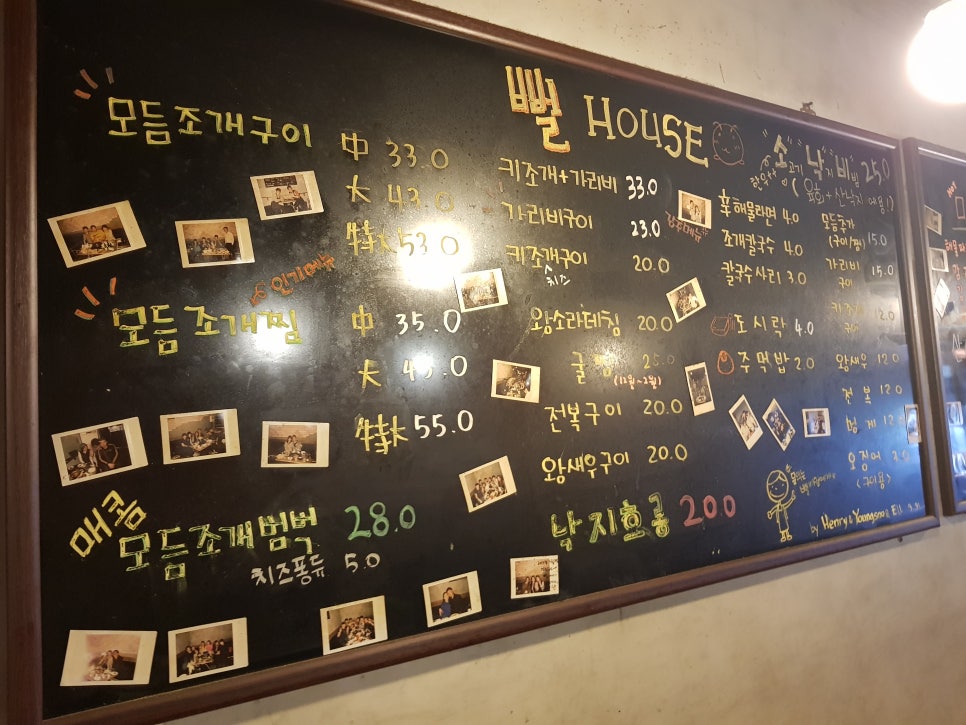 뻘 HOUSE
모듬조개구이
中 33.0
大 43.0
特大 53.0
인기메뉴
모듬조개찜
中 35.0
大 45.0
特大 55.0
매콤
모듬조개범벅 28.0
치즈퐁듀 5.0
키조개+가리비 33.0
가리비구이 23.0
키조개구이 20.0
치즈
왕소라데침 20.0
굴찜 25.0
(12월~2월)
전복구이 20.0
왕새우구이 20.0
낙지호롱 20.0
소고기 낙지 비빔 25.0
한우++ (육회+산낙지
辛해물라면 4.0
조개칼국수 4.0
칼국수사리 3.0
도시락 4.0
주먹밥 2.0
모듬추가
(구이/찜) 15.0
가리비
구이 15.0
키조개
구이
왕새우 12.0
전복 12.0
오징어
(구이용)
by Henry & Youngsoo &